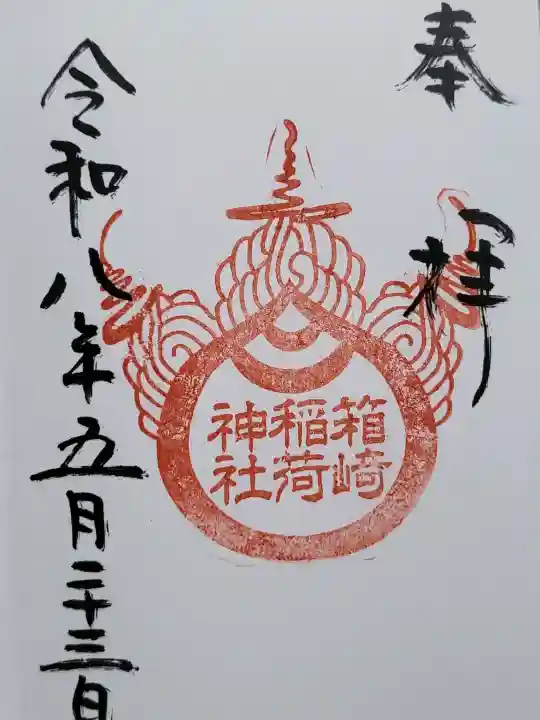 奉拝
箱崎
稲荷
神社
令和八年五月二十三日